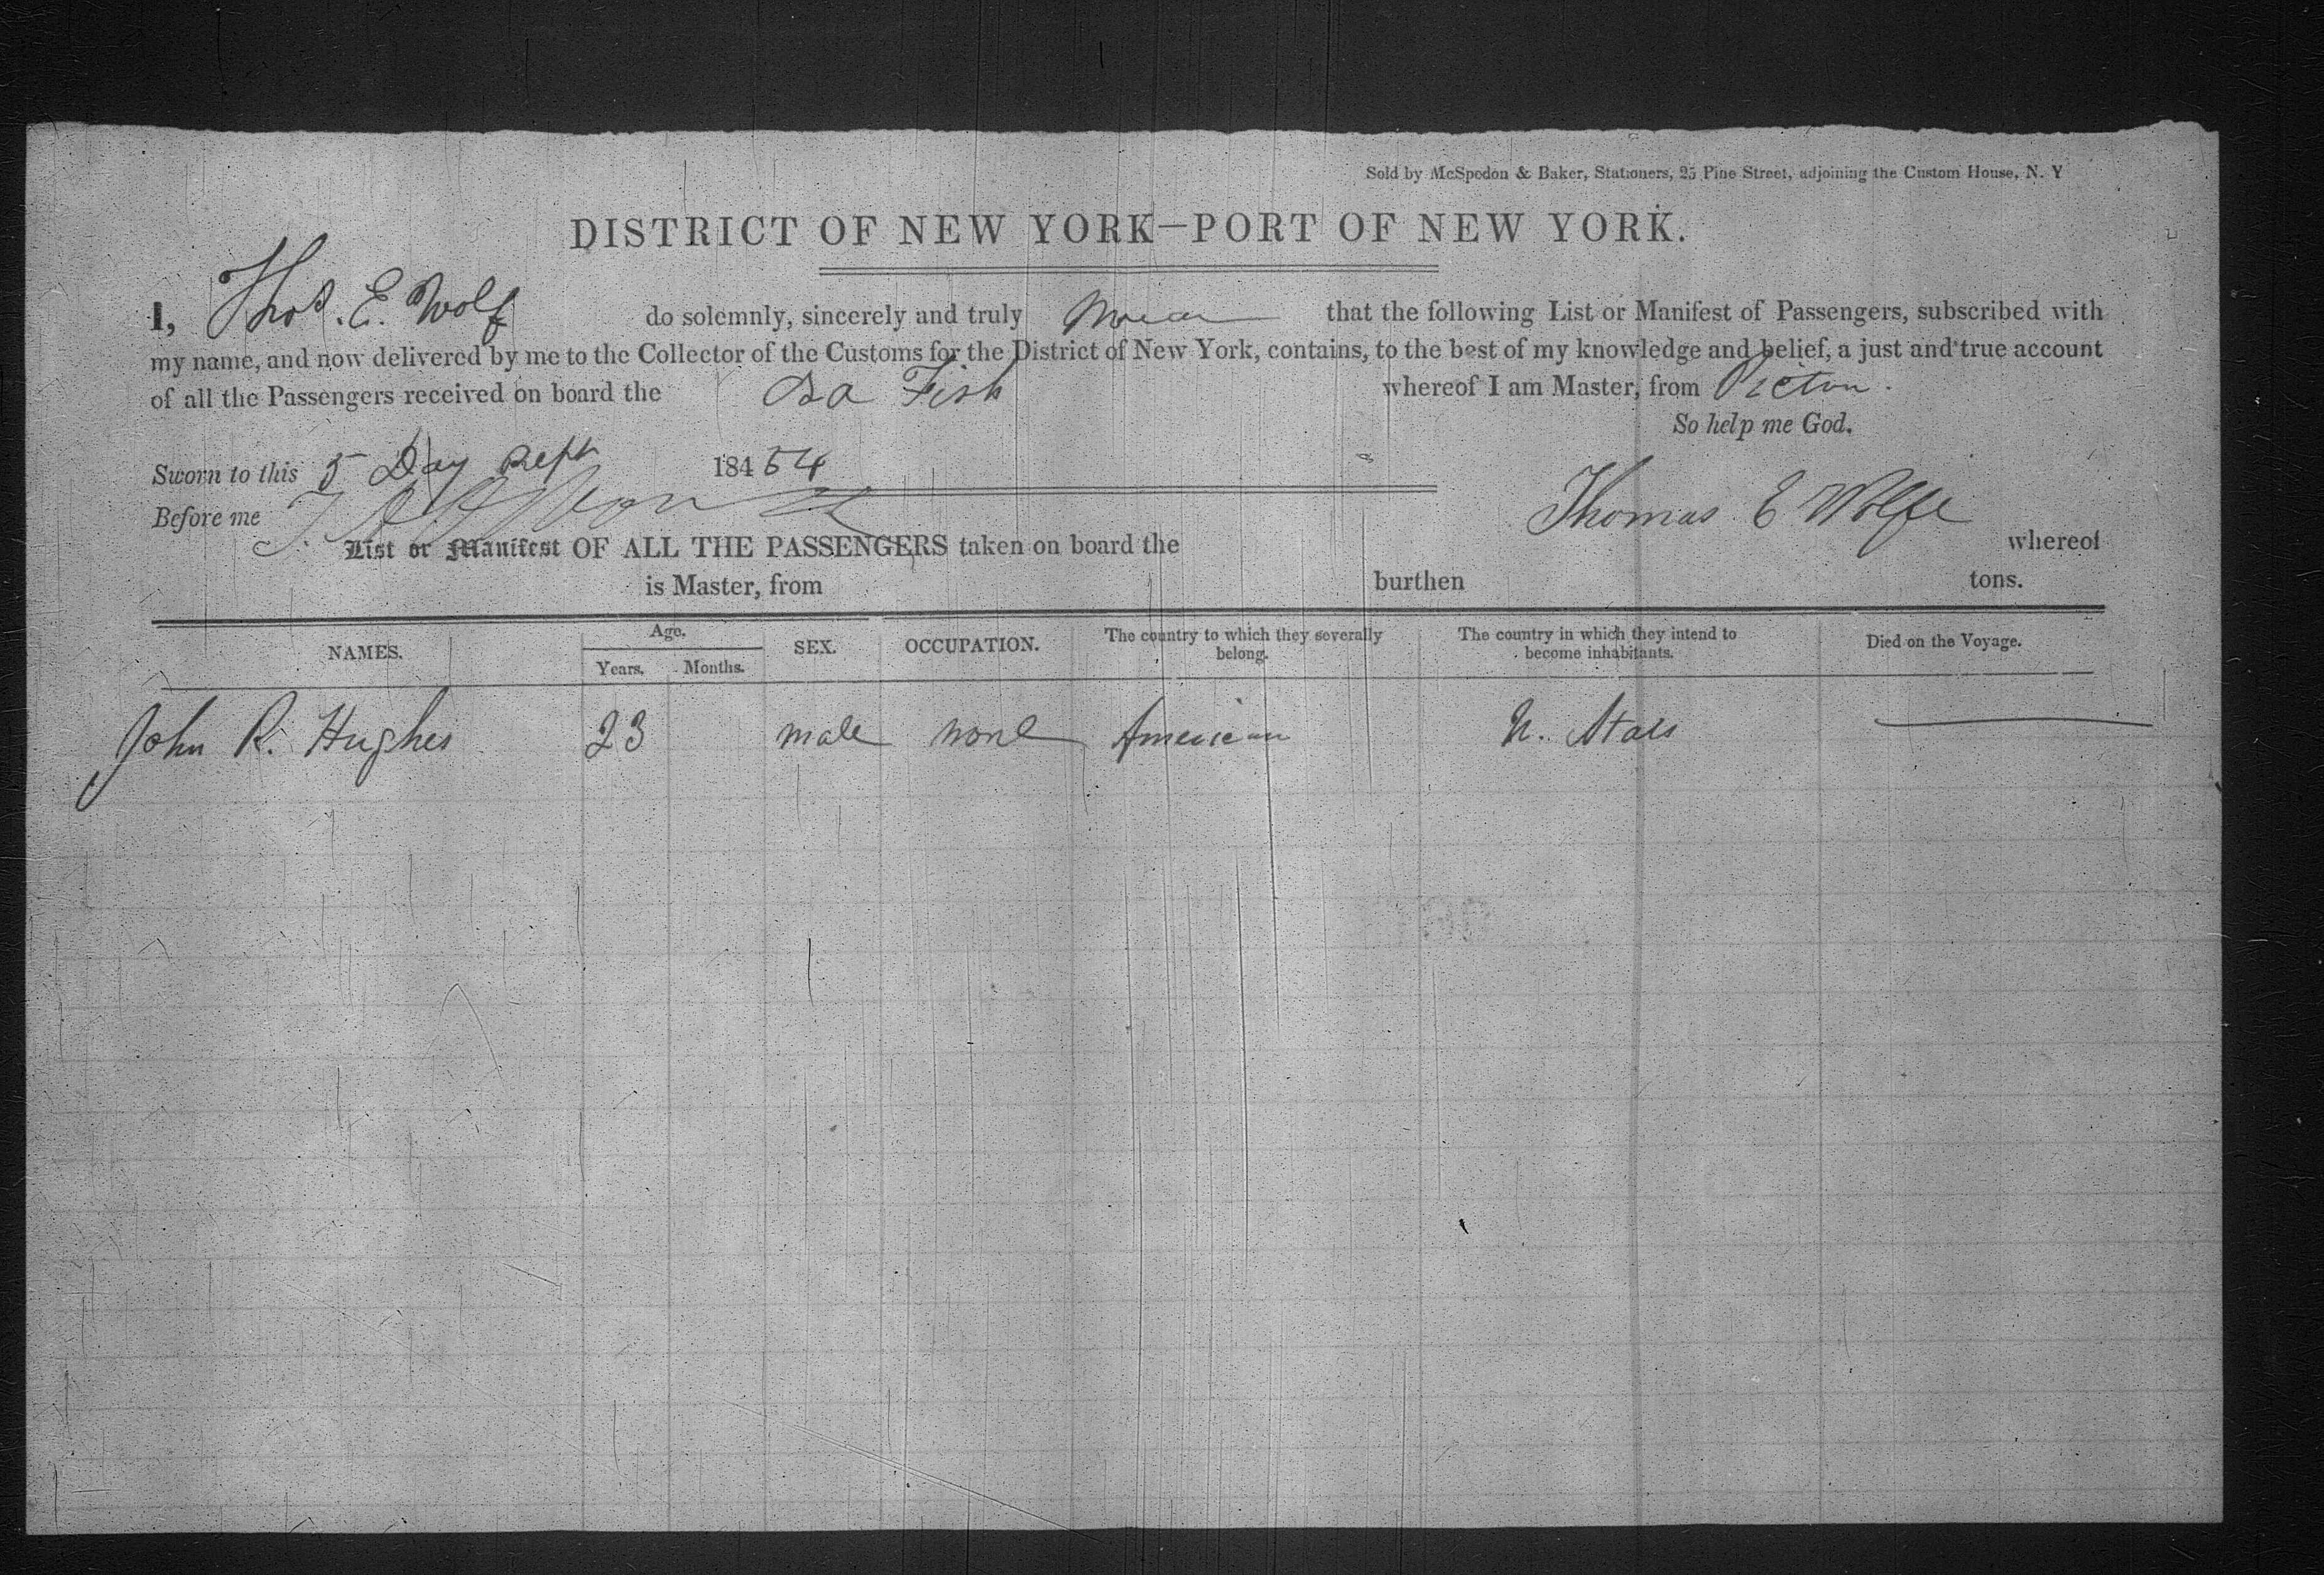 Sold by McSpedon & Baker, Stationers, 25 Pine Street, adjoining the Custom House, N. Y
DISTRICT OF NEW YORK—PORT OF NEW YORK.
I, Thos. E. Wolf do solemnly, sincerely and truly that the following List or Manifest of Passengers, subscribed with
my name, and now delivered by me to the Collector of the Customs for the District of New York, contains, to the best of my knowledge and belief, a just and true account
of all the Passengers received on board the Fish whereof I am Master, from Picton.
So help me God.
Sworn to this 5 Day Sept 184 54
Before me
Thomas E Wolfe
List or Manifest OF ALL THE PASSENGERS taken on board the whereof
is Master, from burthen tons.
NAMES. Age. Years. Months. SEX. OCCUPATION. The country to which they severally belong. The country in which they intend to become inhabitants. Died on the Voyage.
John R. Hughes 23 male none American U. States